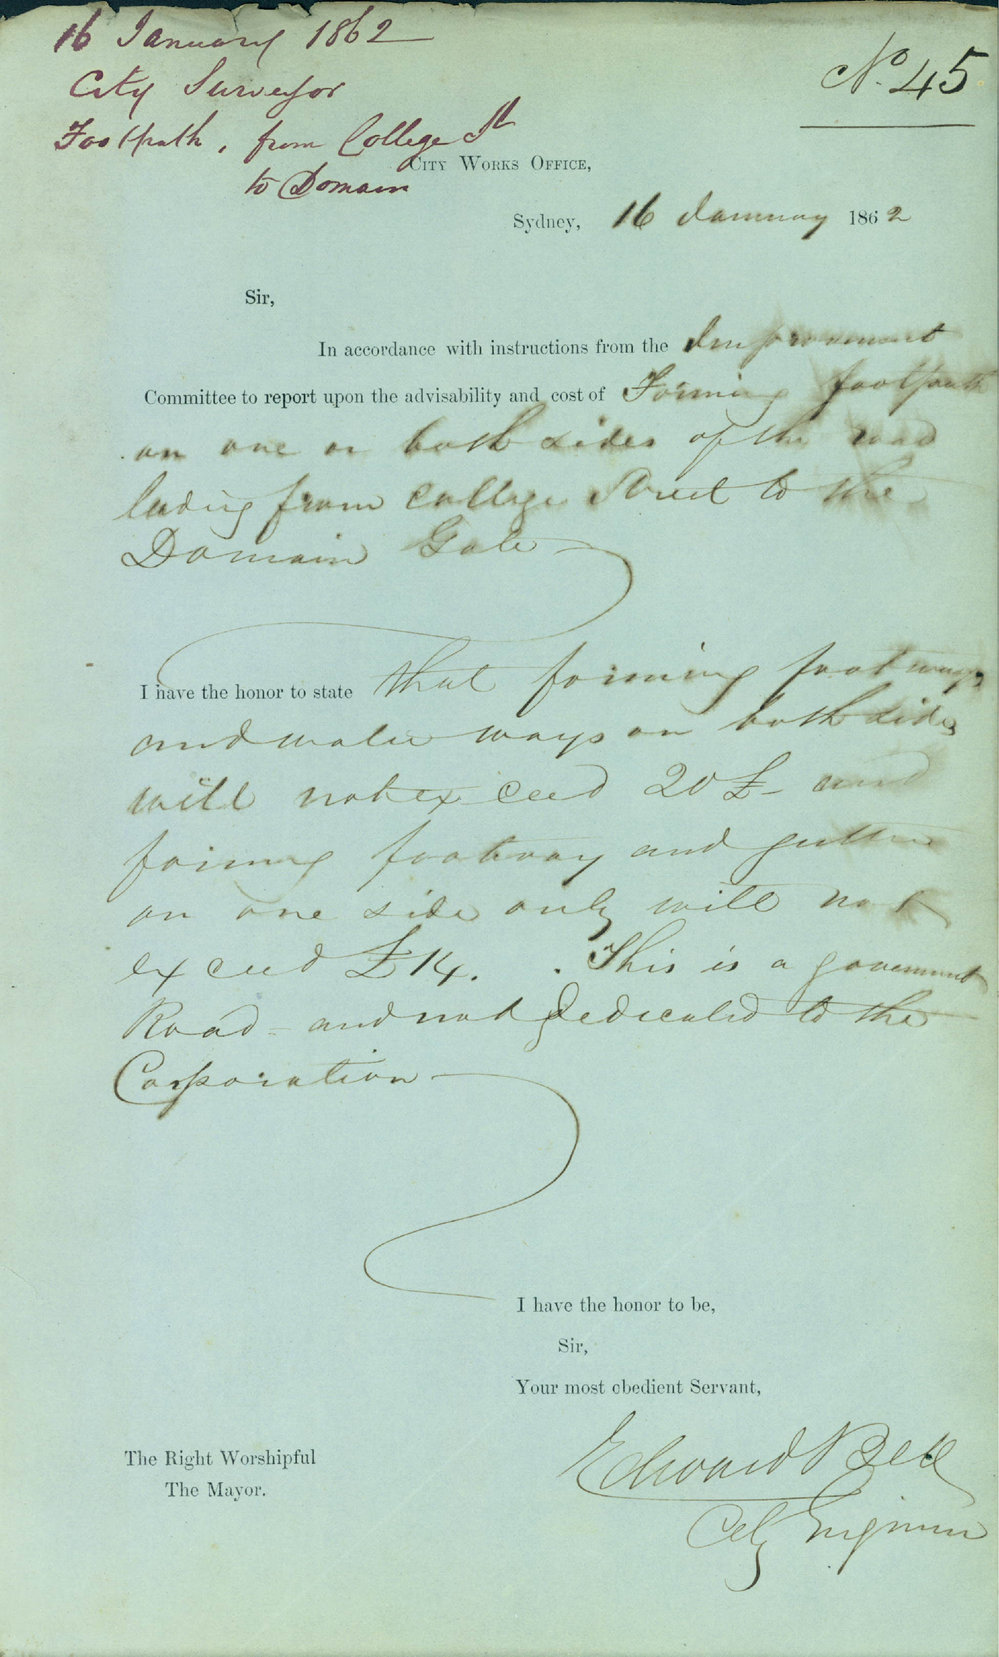 16 January 1862
City Surveyor
Footpath, from College St
to Domain
No. 45
City Works Office,
Sydney, 16 January 1862
Sir,
In accordance with instructions from the Improvement
Committee to report upon the advisability and cost of Forming footpath
on one or both sides of the road
lading from College Street to the
Domain Gate
I have the honor to state that forming footways
and water ways on both sides
will not exceed 20£ and
forming footway and gutter
on one side only will not
exceed £14. . This is a government
Road - and not dedicated to the
Corporation
I have the honor to be,
Sir,
Your most obedient Servant,
Edward Bell
City Engineer
The Right Worshipful
The Mayor.